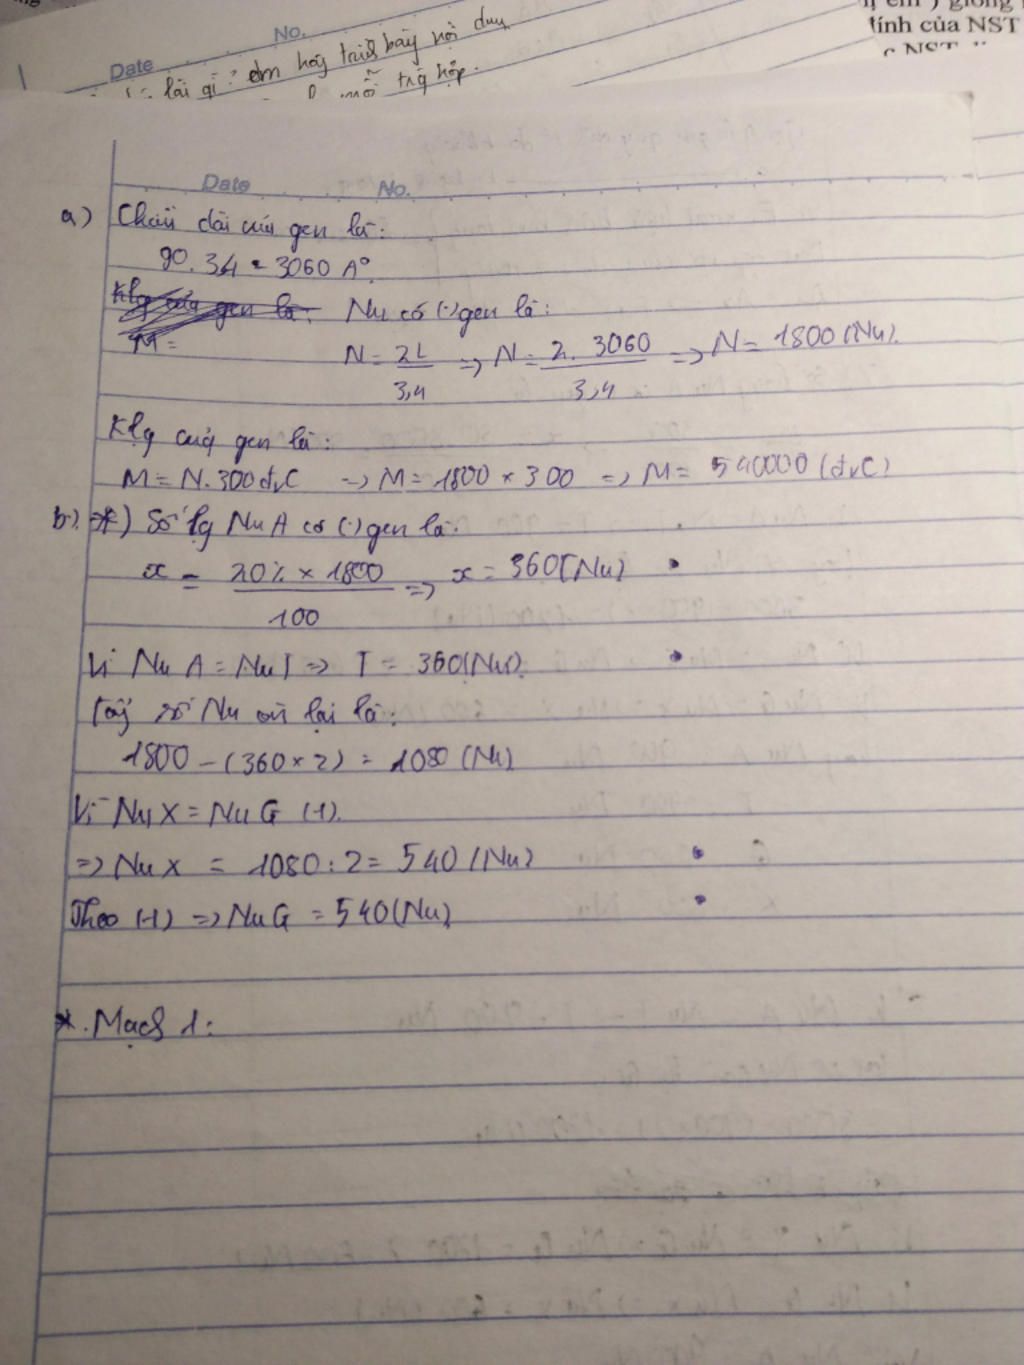 No.
Date
là gì? em hãy trình bày nội dung
mỗi trg hợp.
giống
tính của NST
Date No.
a) Chiều dài của gen là:
90.34 = 3060 A°
Klg của gen là: Nu có (·) gen là:
M =
N = 2L/3,4 => N = 2. 3060/3,4 => N = 1800 (Nu).
Klg của gen là:
M = N.300đvC => M = 1800 × 300 => M = 540000 (đvC)
b) *) Số lg Nu A có (·) gen là:
x = 20% × 1800/100 => x = 360 (Nu)
Vì Nu A = Nu T => T = 360 (Nu).
Tổng số Nu còn lại là:
1800 - (360 × 2) = 1080 (Nu)
Vì Nu X = Nu G (1).
=> Nu X = 1080 : 2 = 540 (Nu)
Theo (1) => Nu G = 540 (Nu)
*. Mạch 1: